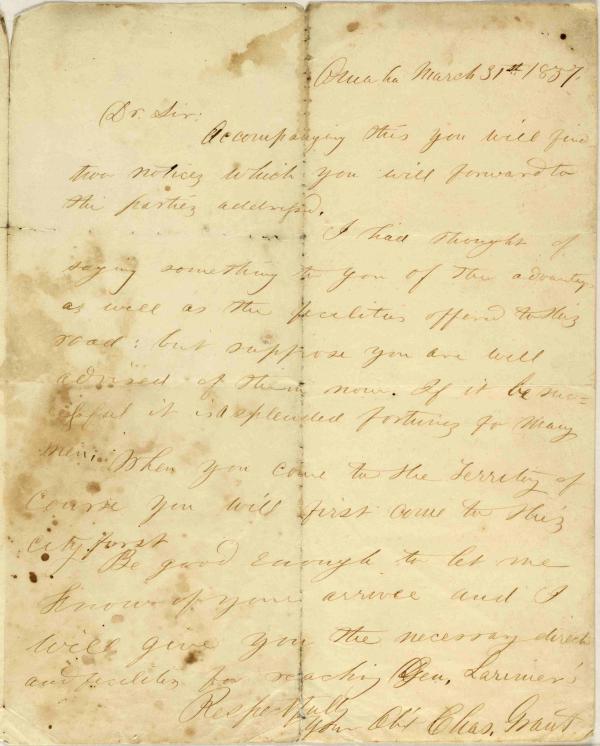 Omaha March 31th 1857.
Dr. Sir:
Accompanying this you will find
two notices which you will forward to
the parties addressed.
I had thought of
saying something to you of the advantages
as well as the facilities offered to this
road: but suppose you are will
advised of them now. If it be suc=
cesful it is splended fortunes for many
men. When you come to the Territory of
course you will first come to this
city first
Be good enough to let me
know of your arrivel and I
will give you the necessary direct
and facilities for reaching Gen. Larimer's
Respectfully
your Obt Chas. Grant